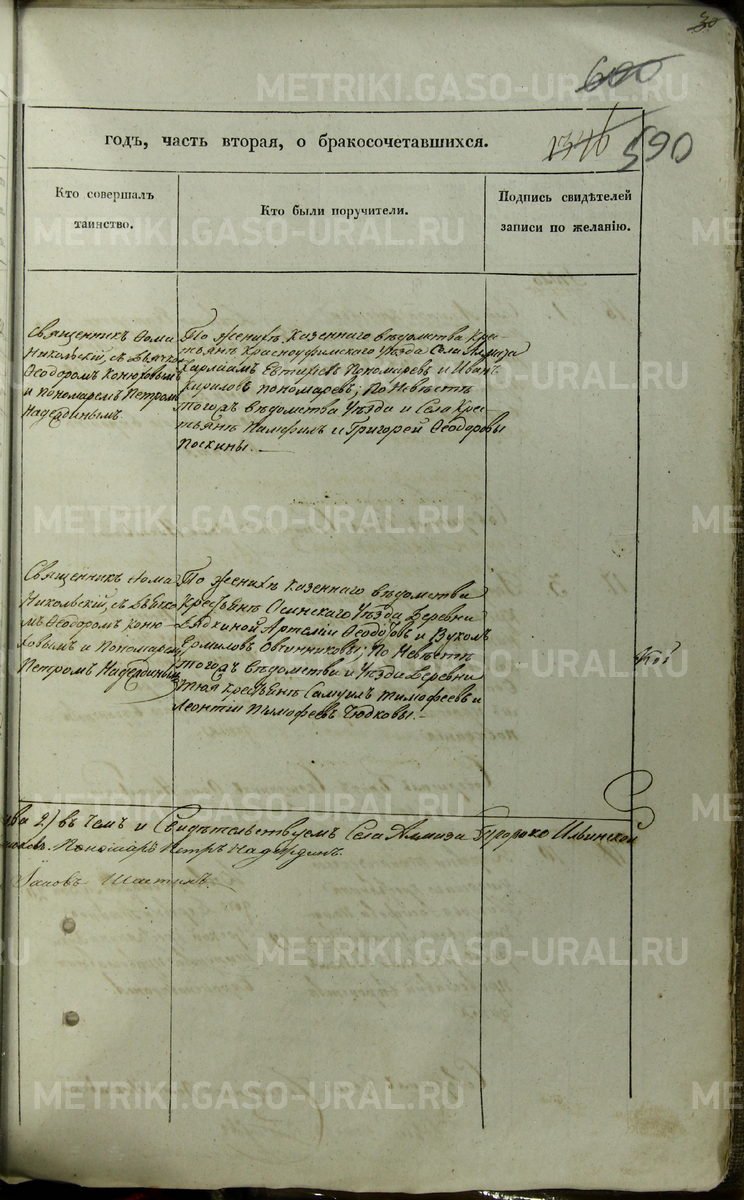 30
600
годъ, часть вторая, о бракосочетавшихся.
1346
590
Кто совершалъ
таинство.
Кто были поручители.
Подпись свидѣтелей
записи по желанію.
Священникъ Ѳома
Никольскій, съ Дьячко
Ѳеодоромъ Конюховымъ
и пономаремъ Петромъ
Надеждинымъ.
По женихѣ казеннаго вѣдомства Кре-
стьянъ Красноуфимскаго Уѣзда Села Алмаза
Харлампъ Евтихеевъ Пономаревъ и Иванъ
Кириловъ Пономаревъ; По Невѣстѣ
тогожъ вѣдомства Уѣзда и Села Кре-
стьянъ Памфилъ и Григорей Ѳеодоровы
Поскины.
Священникъ Ѳома
Никольскій, съ Дьячко
мъ Ѳеодоромъ Коню-
ховымъ и Пономаремъ
Петромъ Надеждинымъ
По женихѣ казеннаго вѣдомства
Крестьянъ Осинскаго Уѣзда Деревни
Ѳеодоровъ и
Ермиловъ Овчинниковы; По Невѣстѣ
тогожъ вѣдомства и Уѣзда Деревни
Тюя Крестьянъ Самуилъ Тимофеевъ и
Леонтій Тимофеевъ Чудковы.
2) въ чемъ и Свидѣтельствуемъ Села Алмаза Ильинской
Пономарь Петръ Надеждинъ.
METRIKI.GASO-URAL.RU